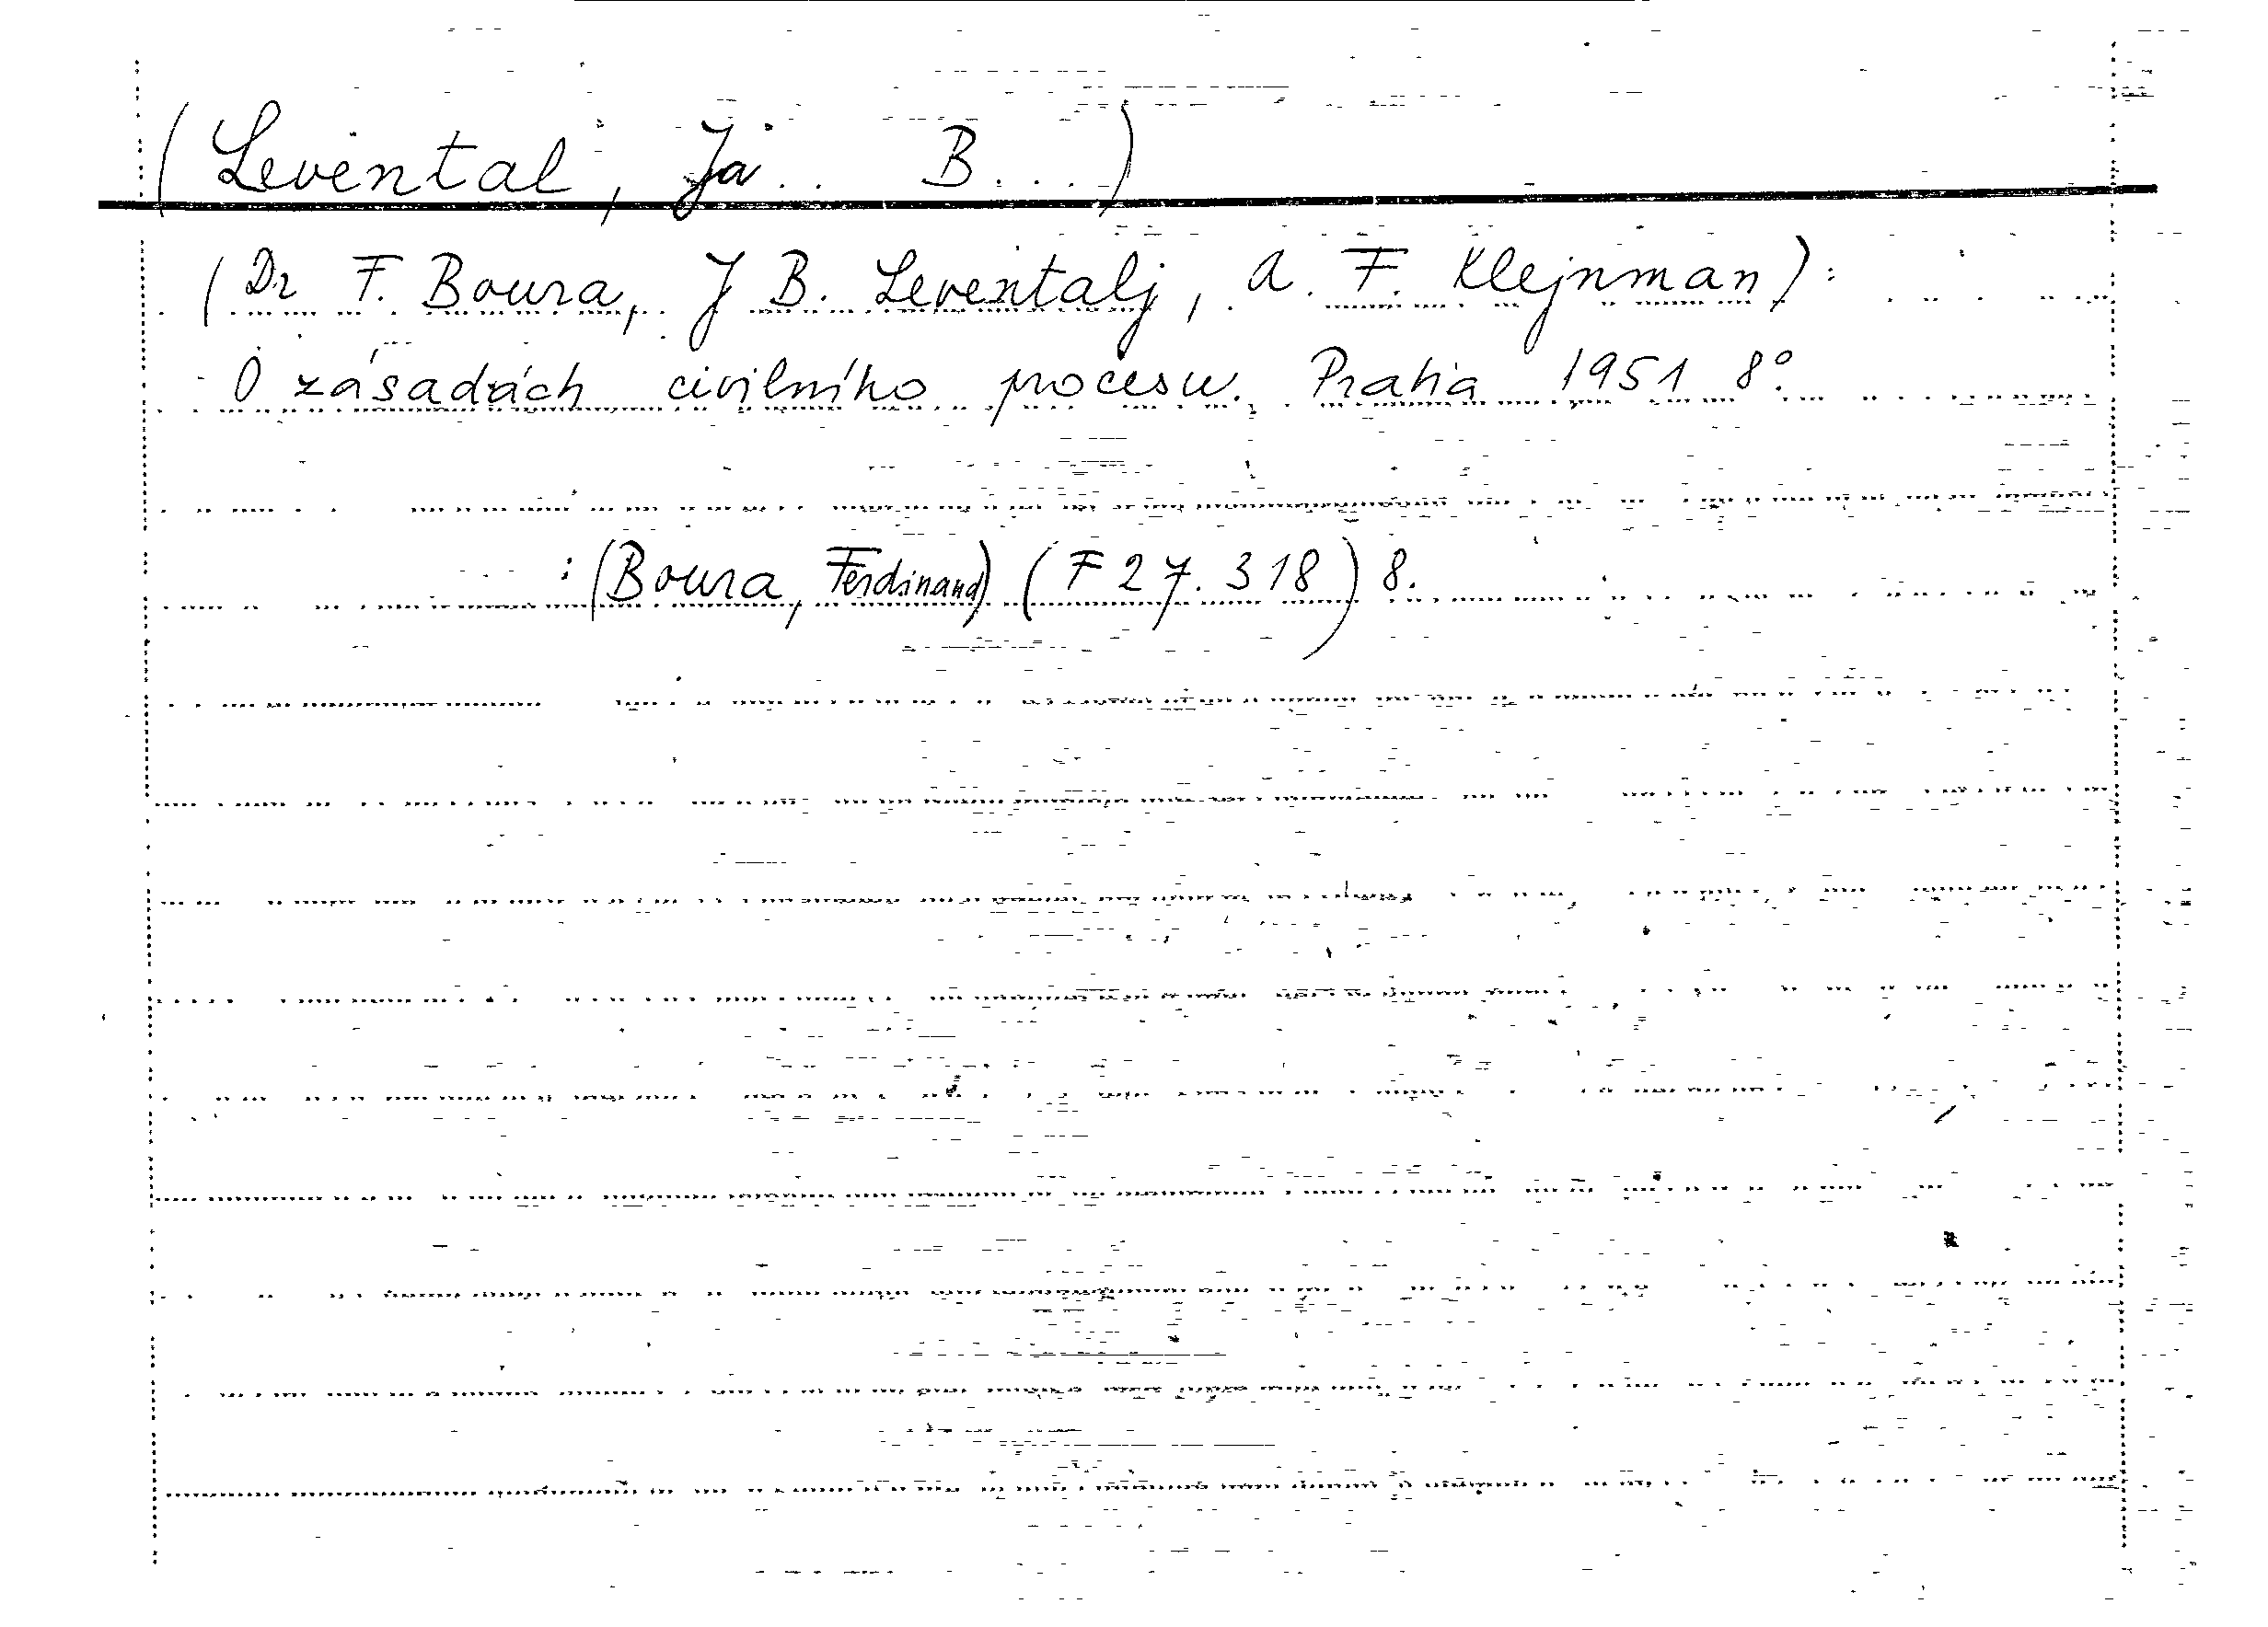 (Levental, Ja.. B...)
(Dr F. Boura, J B. Leventalj, A. F. Klejnman):
O zásadách civilního procesu. Praha 1951 8°.
: (Boura, Ferdinand) (F 27.318) 8.